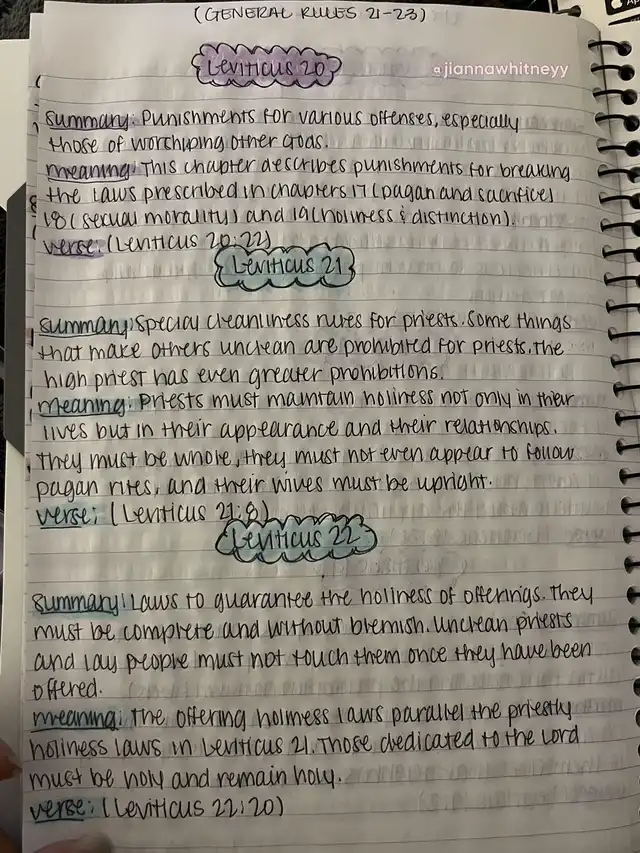 (GENERAL RULES 21-23)
Leviticus 20
@jiannawhitneyy
Summary: Punishments for various offenses, especially
those of worshiping other Gods.
meaning: This chapter describes punishments for breaking
the laws prescribed in chapters 17 (pagan and sacrifice)
18 (sexual morality) and 19 (holiness & distinction).
verse: (Leviticus 20:22)
Leviticus 21
Summary: Special cleanliness rules for priests. Some things
that make others unclean are prohibited for priests. The
high priest has even greater prohibitions.
Meaning: Priests must maintain holiness not only in their
lives but in their appearance and their relationships.
They must be whole, they must not even appear to follow
pagan rites, and their wives must be upright.
verse: (Leviticus 21:8)
Leviticus 22
Summary: Laws to guarantee the holiness of offerings. They
must be complete and without blemish. Unclean priests
and lay people must not touch them once they have been
offered.
meaning: The offering holiness laws parallel the priestly
holiness laws in Leviticus 21. Those dedicated to the Lord
must be holy and remain holy.
verse: (Leviticus 22:20)